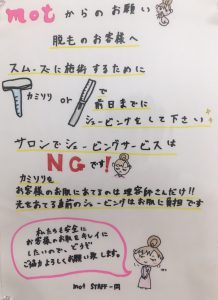 motからのお願い
脱毛のお客様へ
スムーズに施術するために
カミソリ or で
前日までに
シェービングをして下さい
サロンでシェービングサービスは
NGです!
カミソリを
お客様のお肌にあてるのは理容師さんだけ!!
光をあてる直前のシェービングはお肌に負担です
私たちも安全に
お客様のお肌をキレイに
したいので、どうぞ
ご協力よろしくお願い致します。
mot STAFF一同